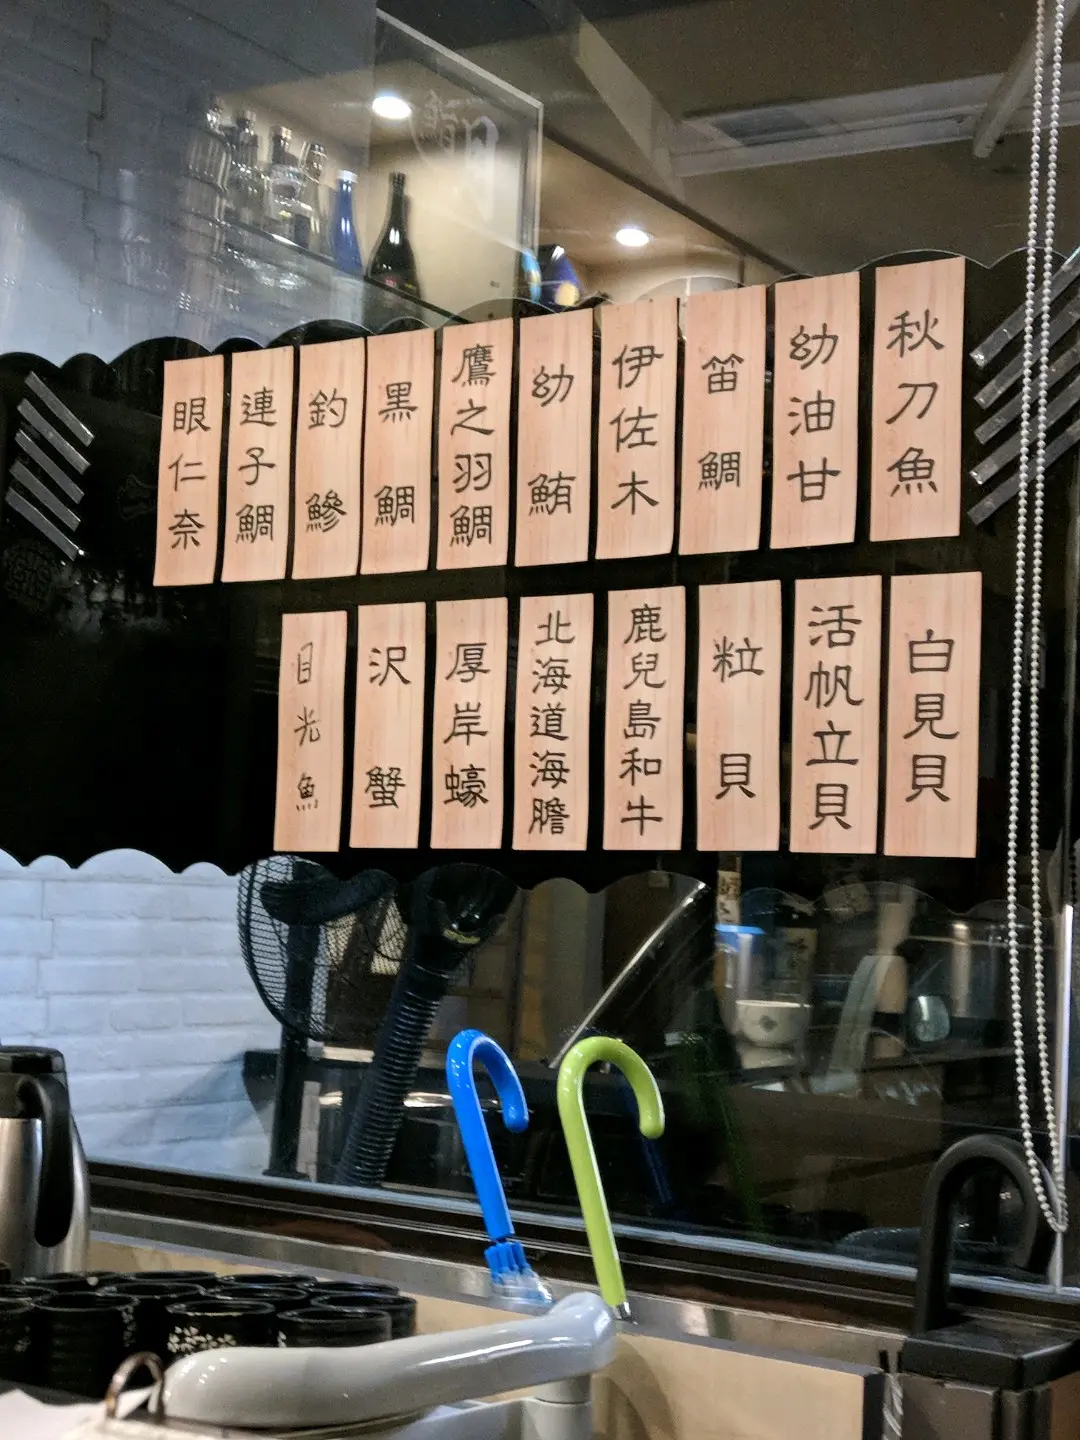 秋刀魚
幼油甘
笛鯛
伊佐木
幼鮪
鷹之羽鯛
黒鯛
釣鰺
連子鯛
眼仁奈
白見貝
活帆立貝
粒貝
鹿兒島和牛
北海道海膽
厚岸蠔
沢蟹
目光魚